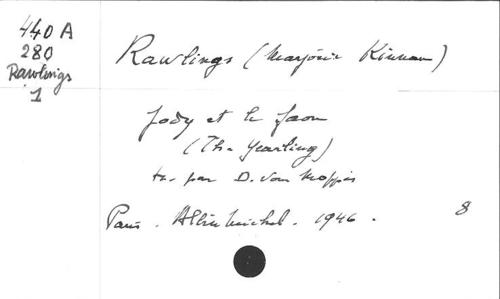 440 A
280
Rawlings
1
Rawlings (Marjorie Kinnan)
Jody et le faon
(The Yearling)
tr. par D. Van Moppès
Paris. Albin Michel. 1946.
8